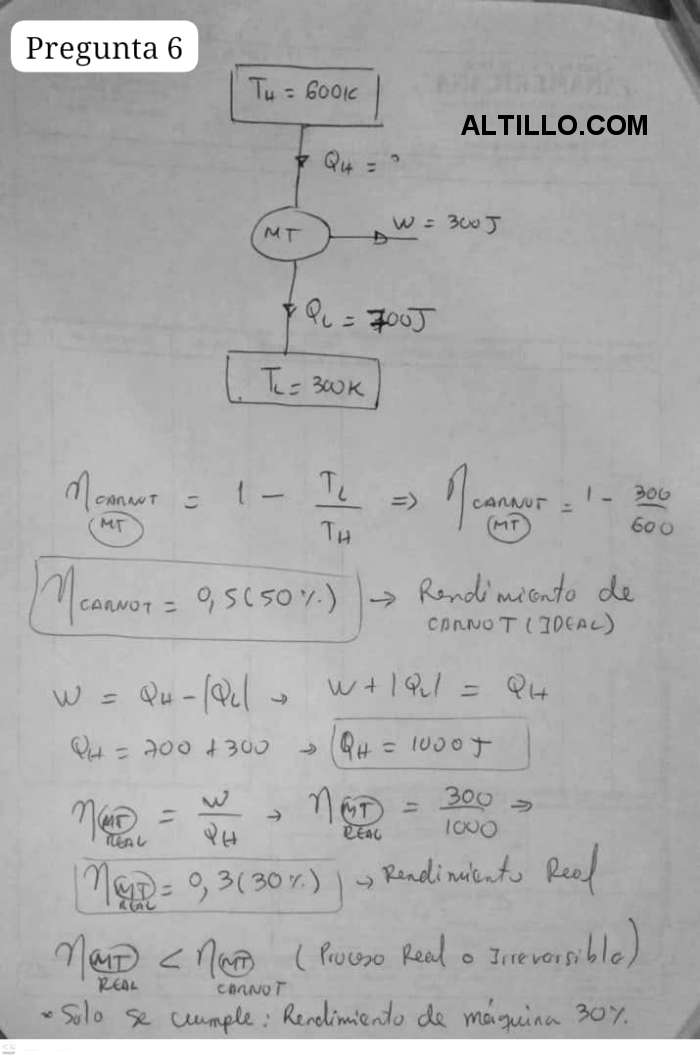 Pregunta 6
T_H = 600K
ALTILLO.COM
Q_H = ?
MT
W = 300J
Q_L = 700J
T_L = 300K
η_CARNOT (MT) = 1 - T_L / T_H => η_CARNOT (MT) = 1 - 300 / 600
η_CARNOT = 0,5 (50%) → Rendimiento de
CARNOT (IDEAL)
W = Q_H - |Q_L| → W + |Q_L| = Q_H
Q_H = 700 + 300 → Q_H = 1000J
η_(MT) REAL = W / Q_H → η_(MT) REAL = 300 / 1000 =>
η_(MT) REAL = 0,3 (30%) → Rendimiento Real
η_(MT) REAL < η_(MT) CARNOT (Proceso Real o Irreversible)
* Solo se cumple: Rendimiento de máquina 30%.